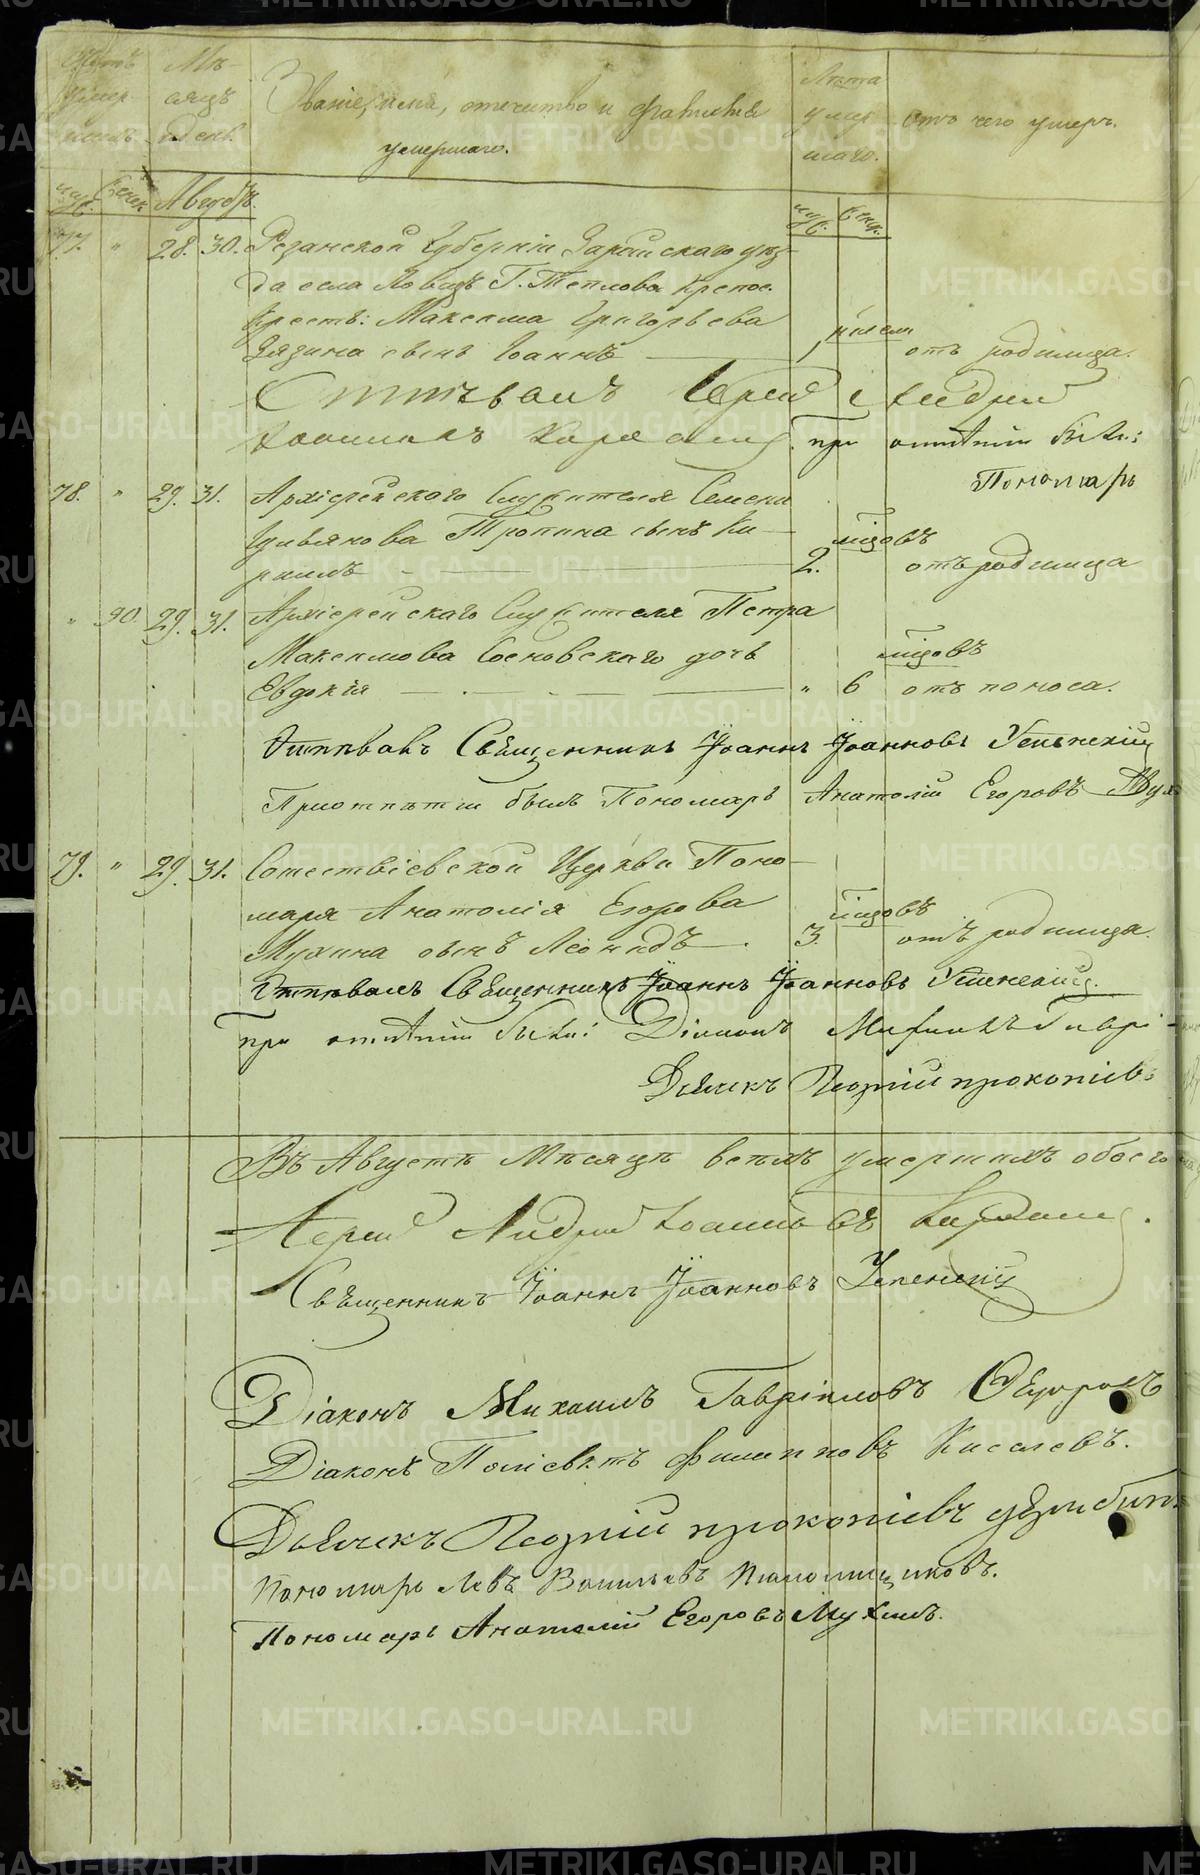 Счетъ Мѣ- Лѣта
умер- сяцъ Званіе, имя, отечитво и фамилія умер отъ чего умеръ.
шихъ день. умершаго. шаго.
муж. женск Августъ. муж. женск.
77. " 28. 30. Резанской Губерніи Зарайскаго уѣз-
да села Ловецъ Г. Теплова крепос.
Крестъ: Максима Григорьева
Зязина сынъ Іоаннъ от родимца.
Отпѣвалъ Іерей Андрей
при отпѣтіи былъ:
Пономарь
78. " 29. 31. Архіерейскаго Служителя Семена
Тропина сынъ Ки-
риллъ 2. мѣсцовъ отъ родимца
" 90. 29. 31. Архіерейскаго Служителя Петра
Максимова Сосновскаго дочь
Евдокія " 6 мѣсцовъ отъ поноса.
Отпѣвалъ Священникъ Іоаннъ Іоанновъ Успенскій
При отпѣтіи былъ Пономарь Анатолій Егоровъ Мух
79. " 29. 31. Сошествіевской Церкви Поно-
маря Анатолія Егорова
Мухина сынъ Леонидъ. 3. мѣсцовъ отъ родимца.
Отпѣвалъ Священникъ Іоаннъ Іоанновъ Успенскій.
при отпѣтіи были: Діаконъ Михаилъ Гаврі-
Дьячекъ Георгій прокопіевъ
Въ Августѣ Мѣсяцѣ всѣхъ умершихъ обоего
Іерей Андрей Іоанновъ
Священникъ Іоаннъ Іоанновъ Успенскій
Діаконъ Михаилъ Гавріиловъ Ѳедоровъ
Діаконъ Поліевктъ Филипповъ Киселевъ.
Дьячекъ Георгій прокопіевъ
Пономарь Левъ Васильевъ
Пономарь Анатолій Егоровъ Мухинъ.
METRIKI.GASO-URAL.RU